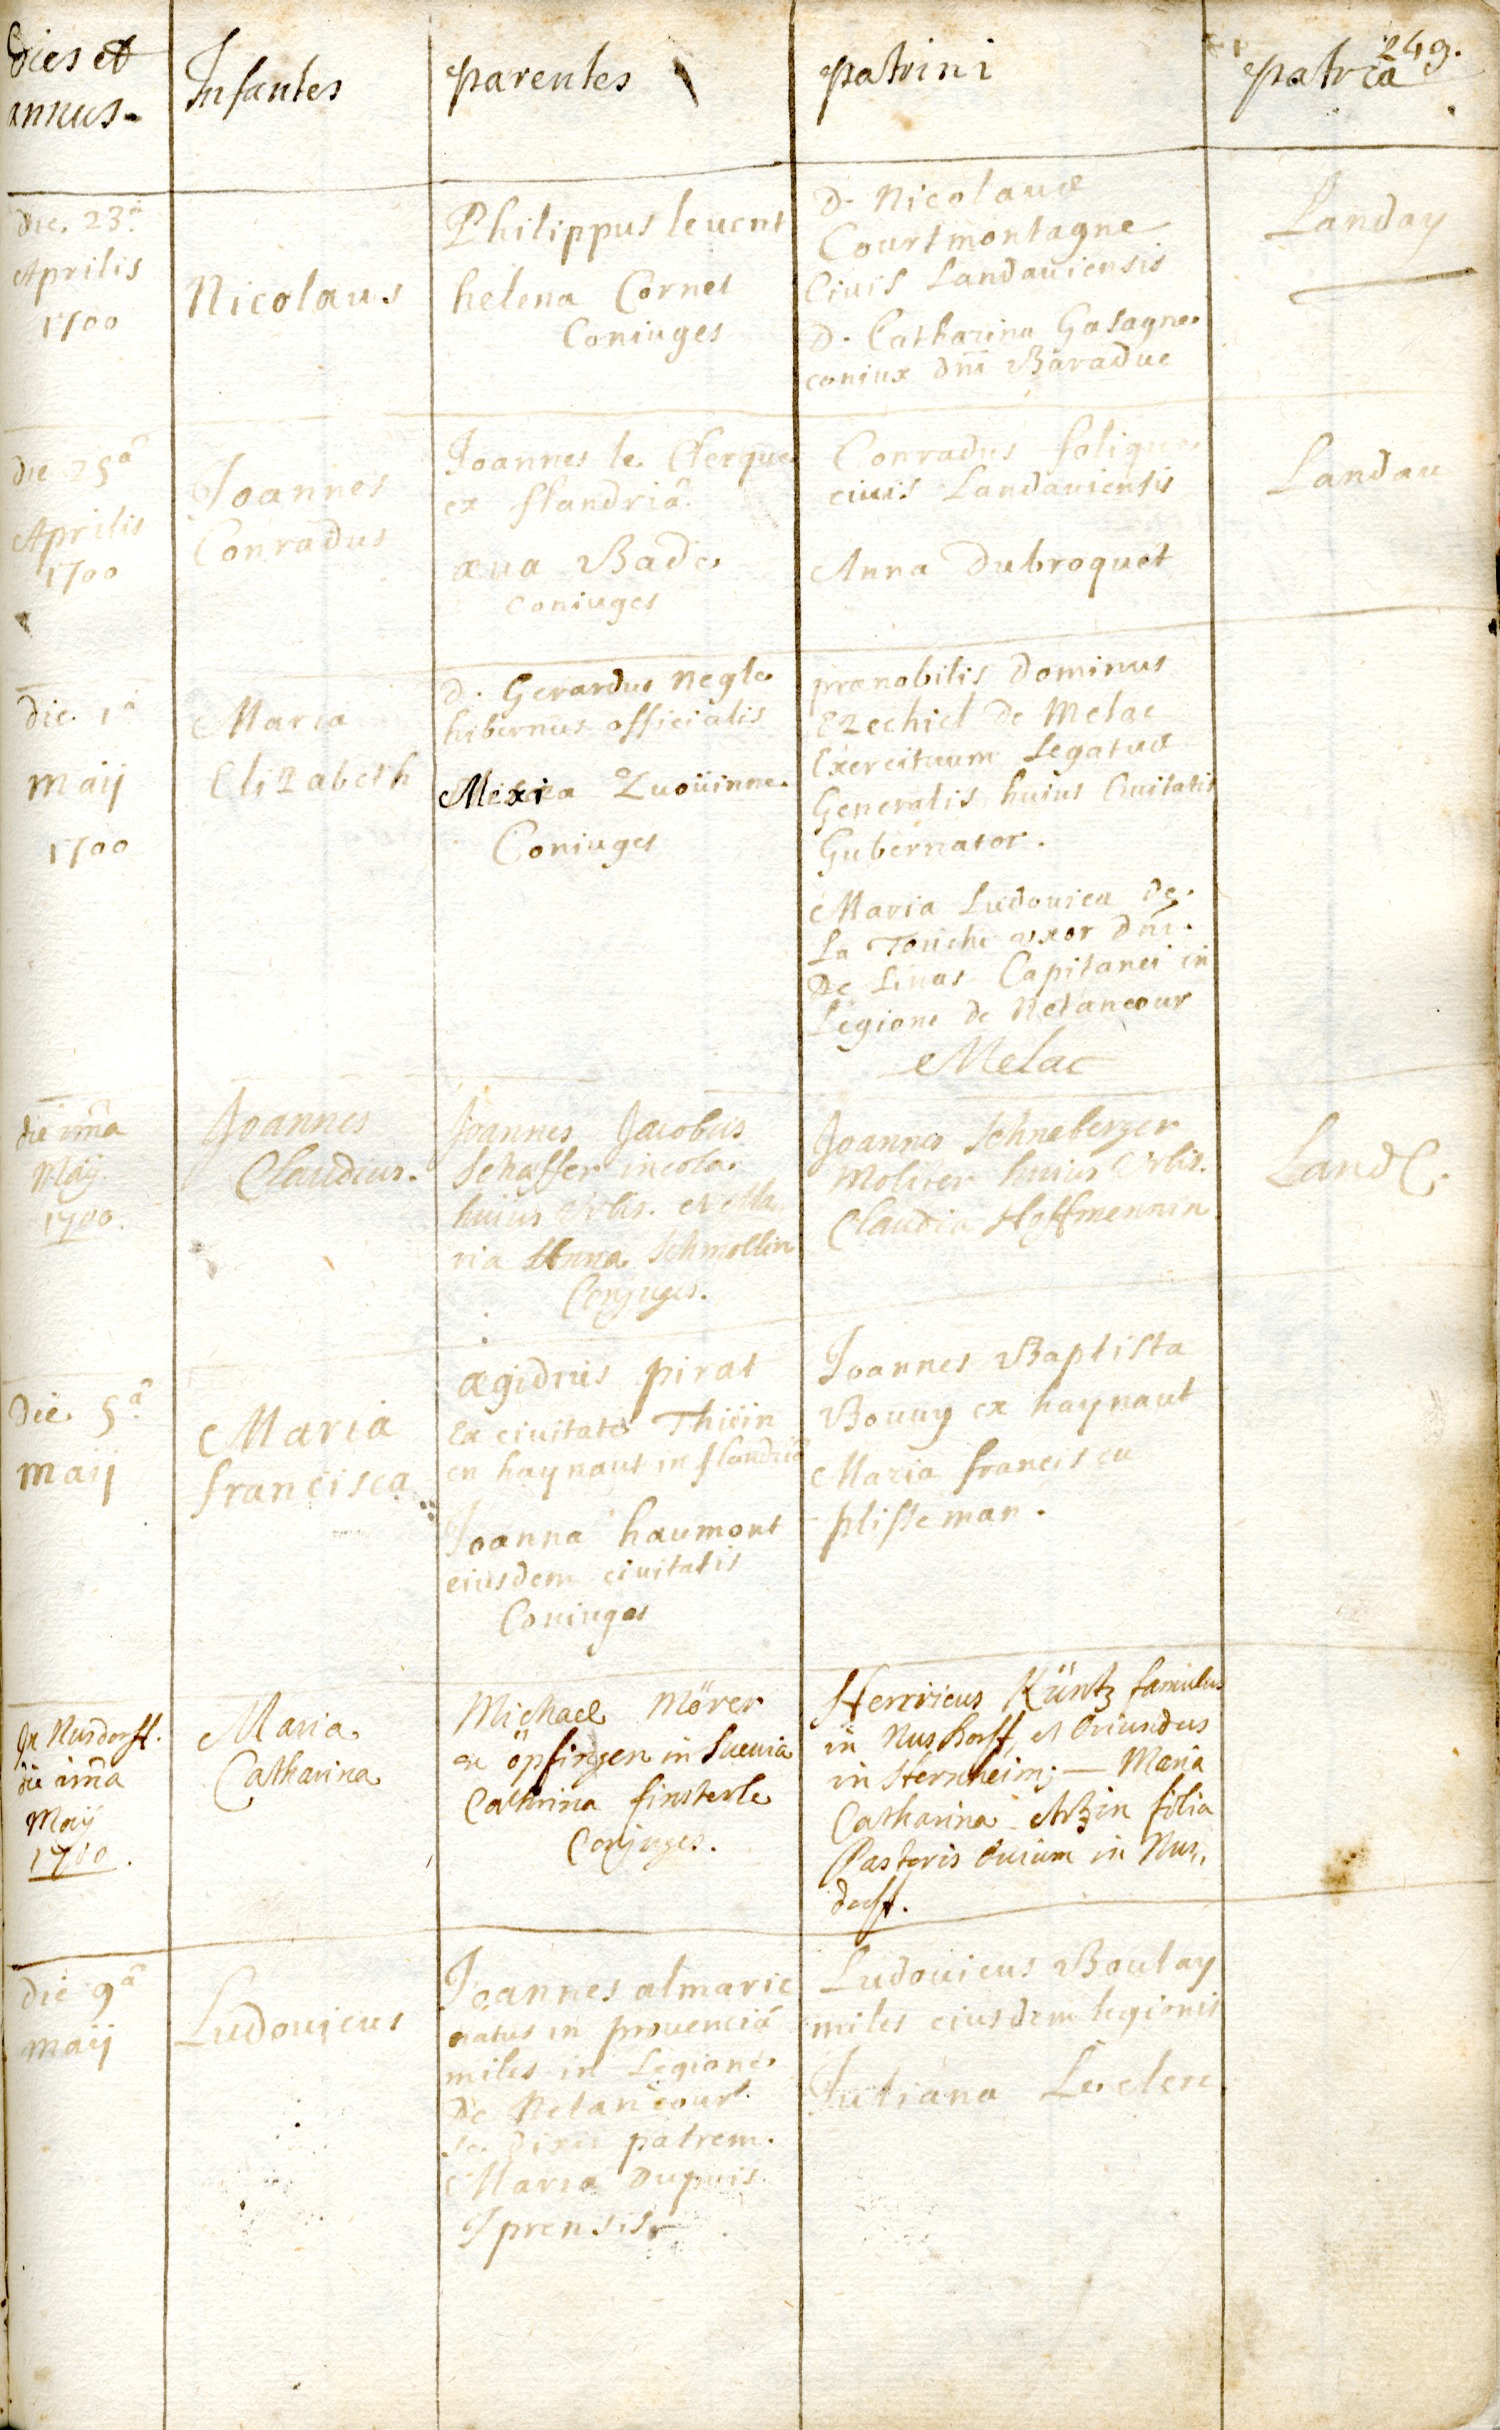 249.
dies et
annus.
Infantes
parentes
patrini
patria
die 23.a
Aprilis
1700
Nicolaus
Philippus leuent
helena Cornet
Coniuges
D. Nicolaus
Courtmontagne
Ciuis Landauiensis
D. Catharina Gasagne
coniux dni Baraduc
Landay
die 25a
Aprilis
1700
Joannes
Conradus
Joannes le Clerque
ex flandriâ
æua Bade
coniuges
Conradus folique
ciuis Landauiensis
Anna Dubroquet
Landau
die 1a
Maij
1700
Maria
Elizabeth
D. Gerardus Negle
hibernus officialis
Coniuges
prænobilis Dominus
Ezechiel de Melac
Exercituum Legatus
Generalis huius Ciuitatis
Gubernator.
Maria Ludouica de
La Touche uxor dni.
De Linas Capitanei in
Legione de Netancour
Melac
die im̃a
Maÿ
1700.
Joannes
Claudius.
Joannes Jacobus
Schaffer incola
huius Vrbis. et Ma
ria Anna Schmollin
Conjuges.
Joannes Schneberger
Molitor huius Vrbis.
Claudia Hoffmennin
Land C.
Die 5.a
Maij
Maria
francisca
ægidius pirat
Ex ciuitate Thüin
en haynaut in flandria
Joanna haumont
eiusdem ciuitatis
Coniuges
Joannes Baptista
Bouuy ex haynaut
Maria francisca
plisseman.
In Nusdorff.
die im̃a
Maÿ
1700.
Maria
Catharina
Michael Mörer
ex öpfingen in Sueuia
Cathrina finsterle
Conjuges.
Henricus Küntz famulus
in Nusdorff, et Oriundus
in Sternheim; — Maria
Catharina Artzin filia
Pastoris Ouium in Nus,,
dorff.
die 9a
Maij
Ludouicus
Joannes almaric
natus in prouenciâ
miles in Legione
De Netancourt
se dixit patrem.
Maria Dupuis
Iprensis
Ludouicus Boulay
miles eiusdem legionis
Juliana Leclerc